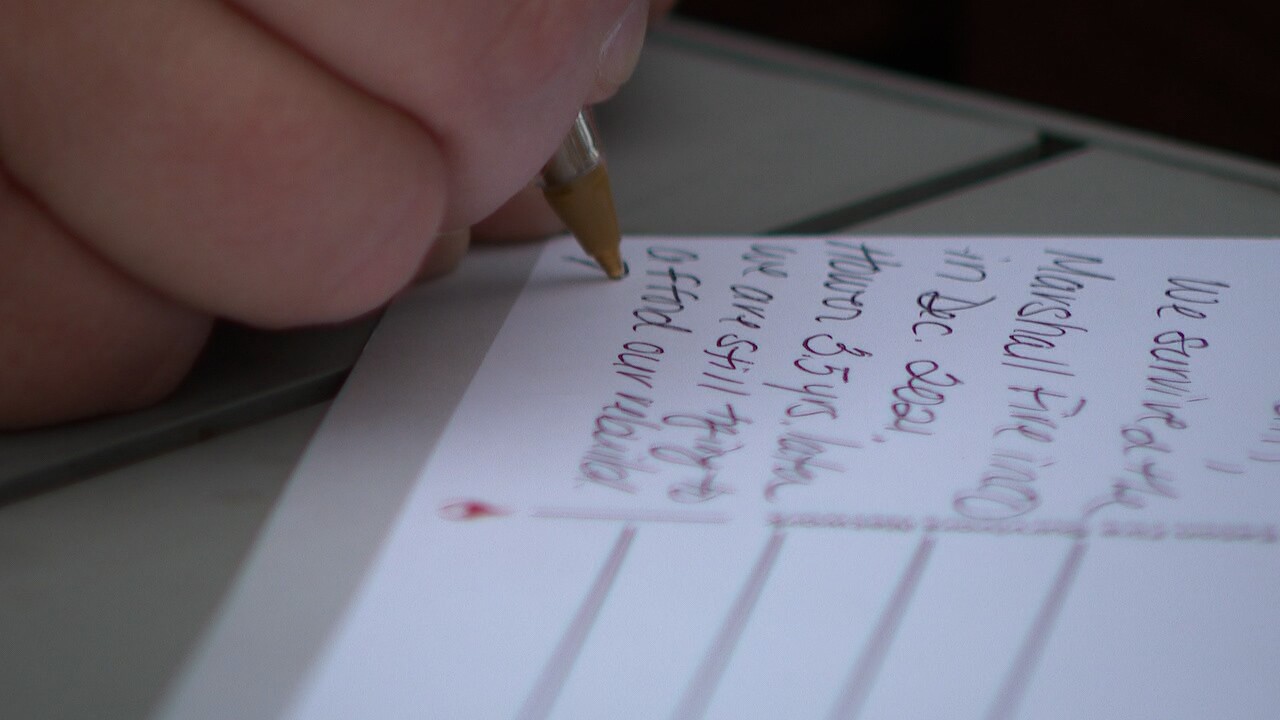 We survived the
Marshall Fire in CO
in Dec. 2021.
3.5 yrs. later
we are still trying to
afford our rebuild